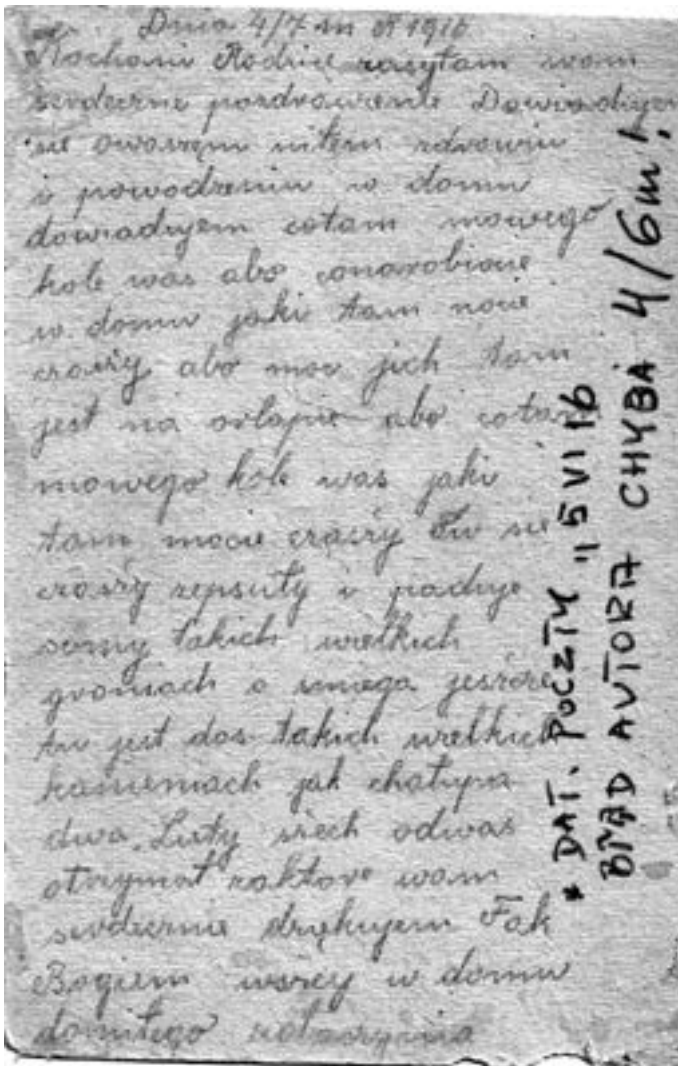 Dnia 4/7 m R 1916
Kochani Rodzice zasyłam wam
serdecne pozdrowienie Dowiadujem
sie owaszem miłem zdrowiu
i powodzeniu w domu
dowiadujem cotam nowego
kole was abo conarobione
w domu jaki tam nocie
crasy abo moc jich tam
jest na orlopie abo cotam
nowego kole was jaki
tam mocie crasy Tu sie
crasy zepsuły i paduje
somy takich wielkich
groniach o sniega jescre
tu jest dos takich wielkich
kamieniach jak chałupa
dwa Listy siech odwas
otrzymoł zaktore wam
serdecnie dziękujem Fak
Bogiem wsicy w domu
domiłego zobacynia
* DAT. POCZTY "5 VI 16
BŁĄD AUTORA CHYBA 4/6m!